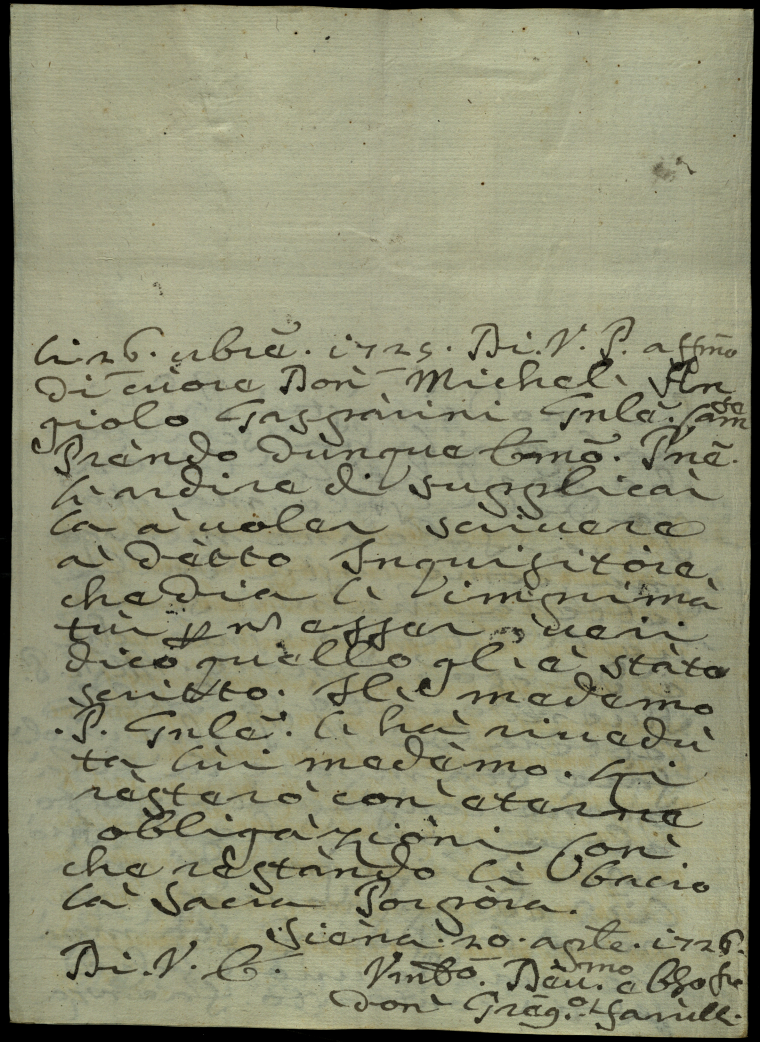 li 26. 9bre. 1725. Di. V. P. affmo
di cuore Don Michel' An
giolo Gasparini Gnle. Came
Prendo dunque Emo. Pne.
l'ardire di supplicar
la à voler scrivere
à detto Inquisitore
che dia l'imprima
tur p nō esser veri
dico quello gli è stato
scritto. Il medemo
P. Gnle. l'hà rivedu
ta lui medemo. Gli
resterò con eterne
obligazioni con
che restando li bacio
la Sacra Porpora.
Siena. 20. agte. 1726.
Di. V. E. Vmo. Deu.mo e Obo
Don Greg.o